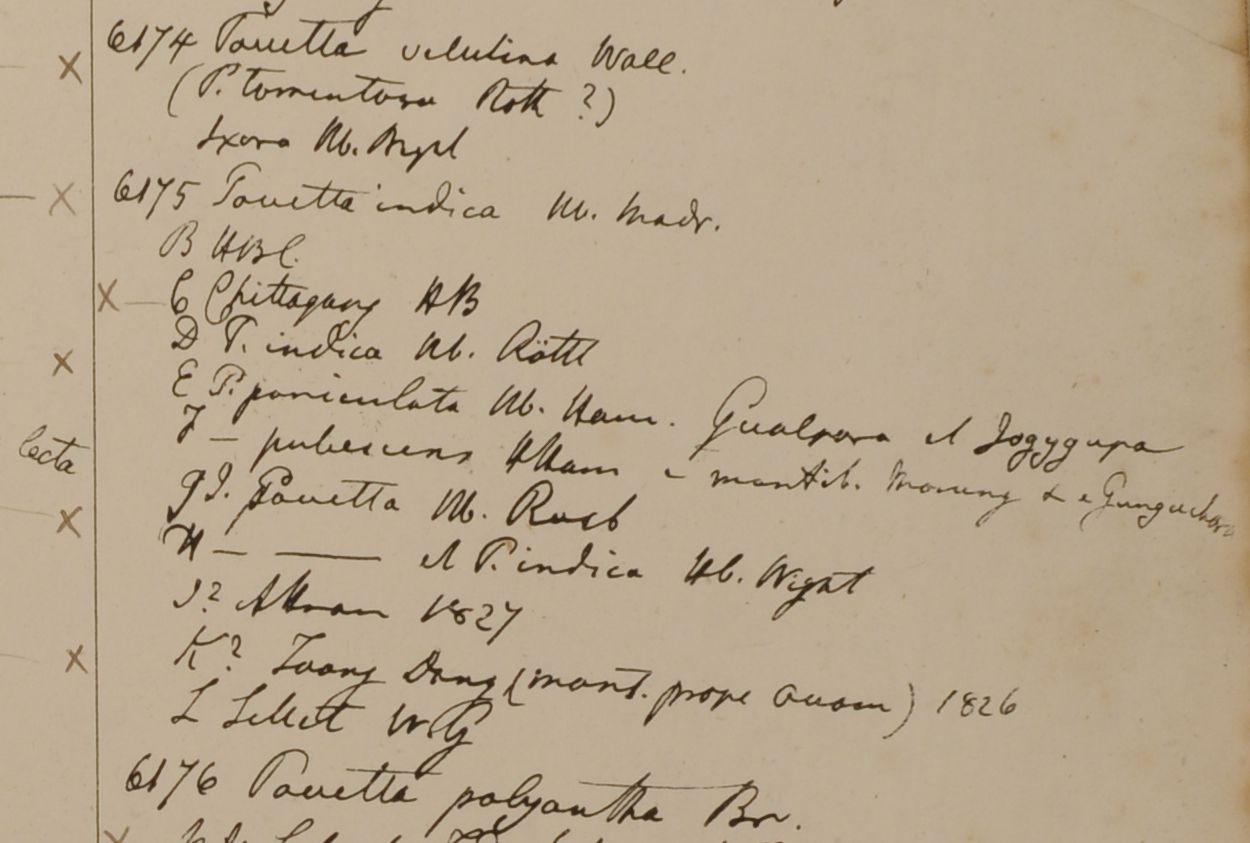 6174 Pavetta velutina Wall.
(P. tomentosa Roth ?)
Ixora Hb. Heyn
6175 Pavetta indica Hb. Madr.
B HBC.
C Chittagong HB
D P. indica Hb. Röttl
E P. paniculata Hb. Ham. Gualpara et Jogygupa
F — pubescens HHam e montib. Morung & e Gungachora
lecta
G J. Pavetta Hb. Roxb
H — —— et P. indica Hb. Wight
I? Attran 1827
K? Toong Dong (mont. prope Avam) 1826
L Sillet WG
6176 Pavetta polyantha Br.